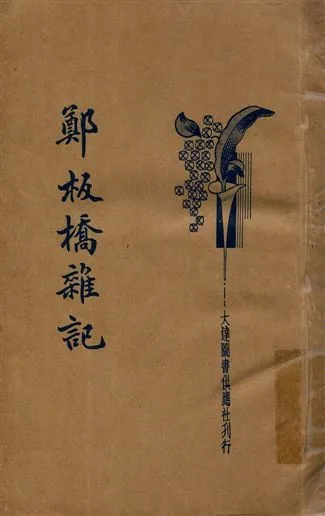 鄭板橋雜記
大達圖書供應社刊行